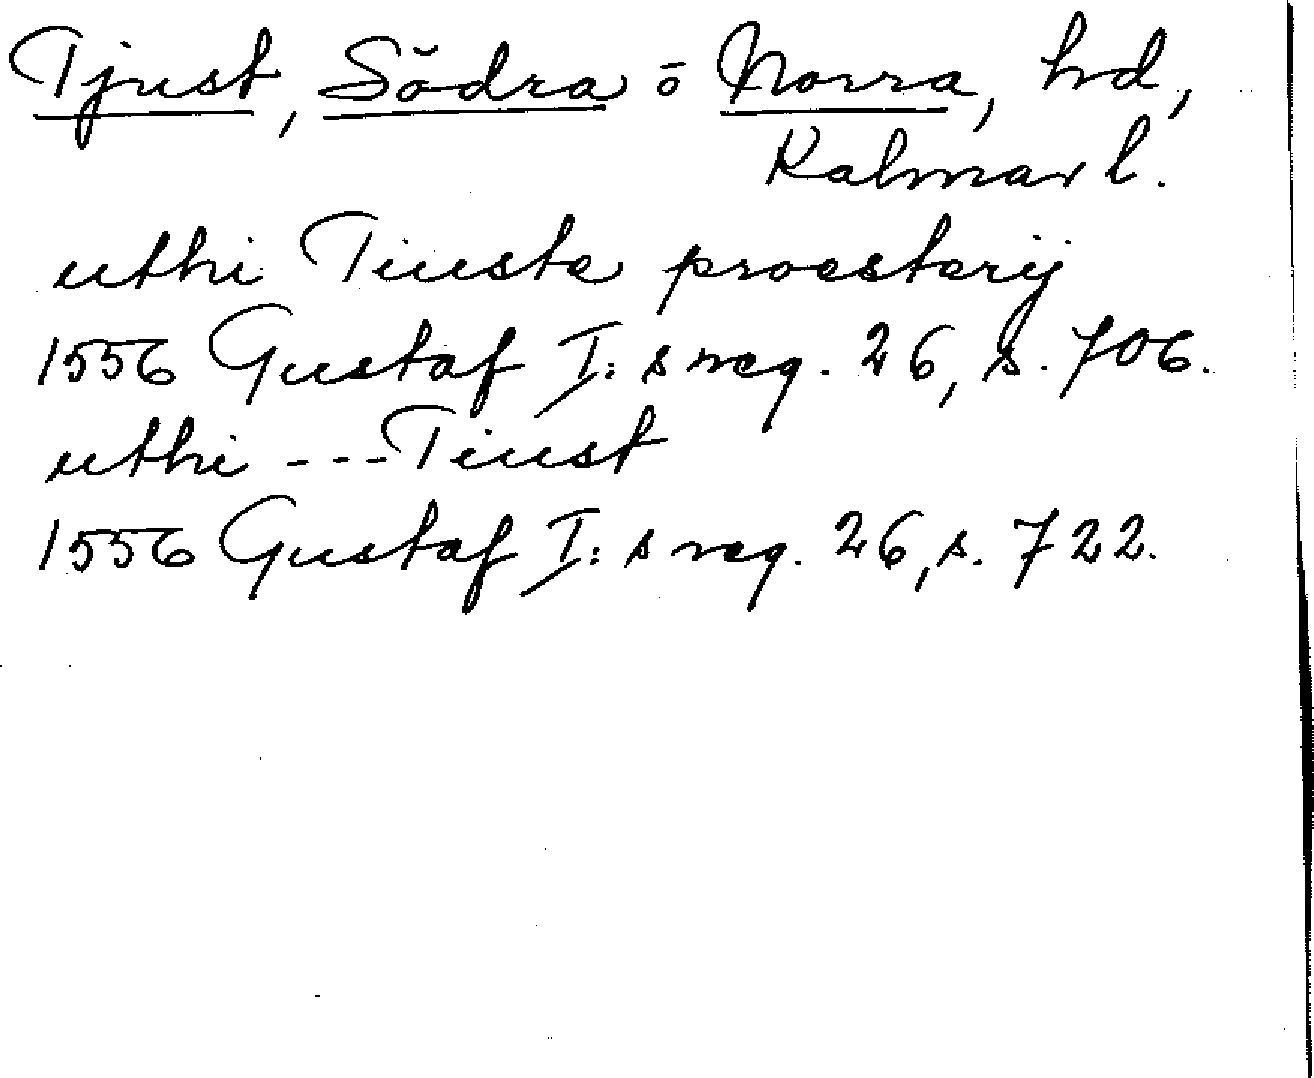 Tjust, Södra o Norra, hd,
Kalmar l.
uthi Tiuste proesterij
1556 Gustaf I:s reg. 26, s. 706.
uthi --- Tiust
1556 Gustaf I:s reg. 26, s. 722.